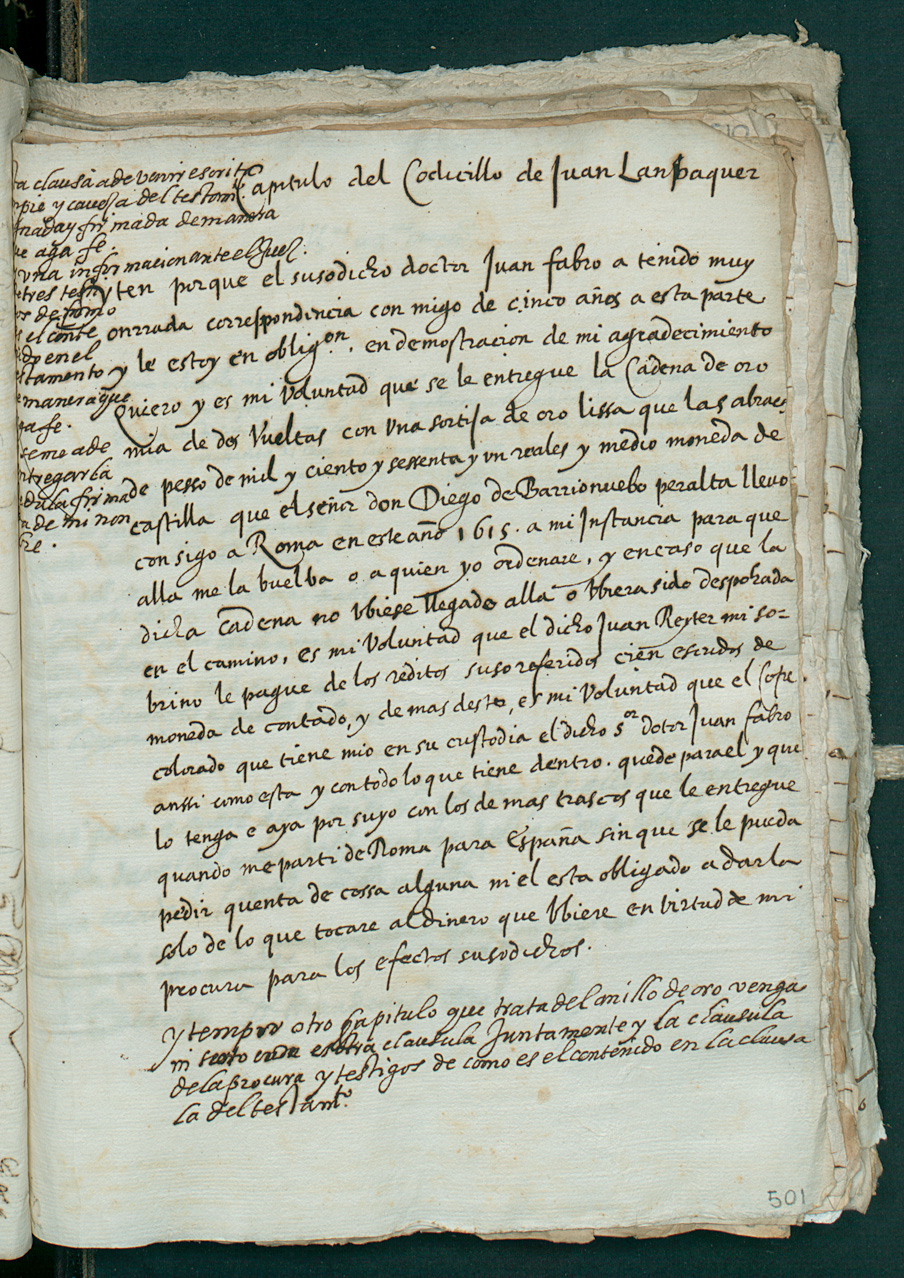 Capitulo del Codicillo de Juan Lanpaquer
ta clausa a de venir escrita
pie y caveça del testamto
mada y firmada de manera
ue aga fe.
una informacion ante el Juez.
tres testigos
os de como
s el conte
ido en el
stamento
manera que
ga fe.
se me a de
ntregar la
dula firmada
a de mi nom
bre.
Yten porque el susodicho doctor Juan fabro a tenido muy
onrrada correspondencia con migo de cinco años a esta parte
y le estoy en obligon. en demostracion de mi agradecimiento
Quiero y es mi Voluntad que se le entregue la Cadena de oro
mia de dos Vueltas con una sortija de oro lissa que las abraça
de pesso de mil y ciento y sessenta y un reales y medio moneda de
castilla que el señor don Diego de Barrionuebo peralta llevo
consigo a Roma en este año 1615. a mi Instancia para que
alla me la buelba o a quien yo ordenare, y en caso que la
dicha Cadena no Ubiese llegado alla o Ubiera sido despojada
en el camino, es mi Voluntad que el dicho Juan Reyter mi so-
brino le pague de los reditos suso referidos cien escudos de
moneda de contado, y de mas desto, es mi Voluntad que el Cofre
colorado que tiene mio en su custodia el dicho sor dotor Juan fabro
anssi como esta y con todo lo que tiene dentro. quede para el y que
lo tenga e aya por suyo con los de mas trastos que le entregue
quando me parti de Roma para España sin que se le pueda
pedir quenta de cossa alguna ni el esta obligado a darla
solo de lo que tocare al dinero que Ubiere en virtud de mi
procura para los efectos susodichos.
Ytem otro Capitulo que trata del anillo de oro venga
esotra clausula Juntamente y la clausula
de la procura y testigos de como es el contenido en la clausu
la del testamto.
501